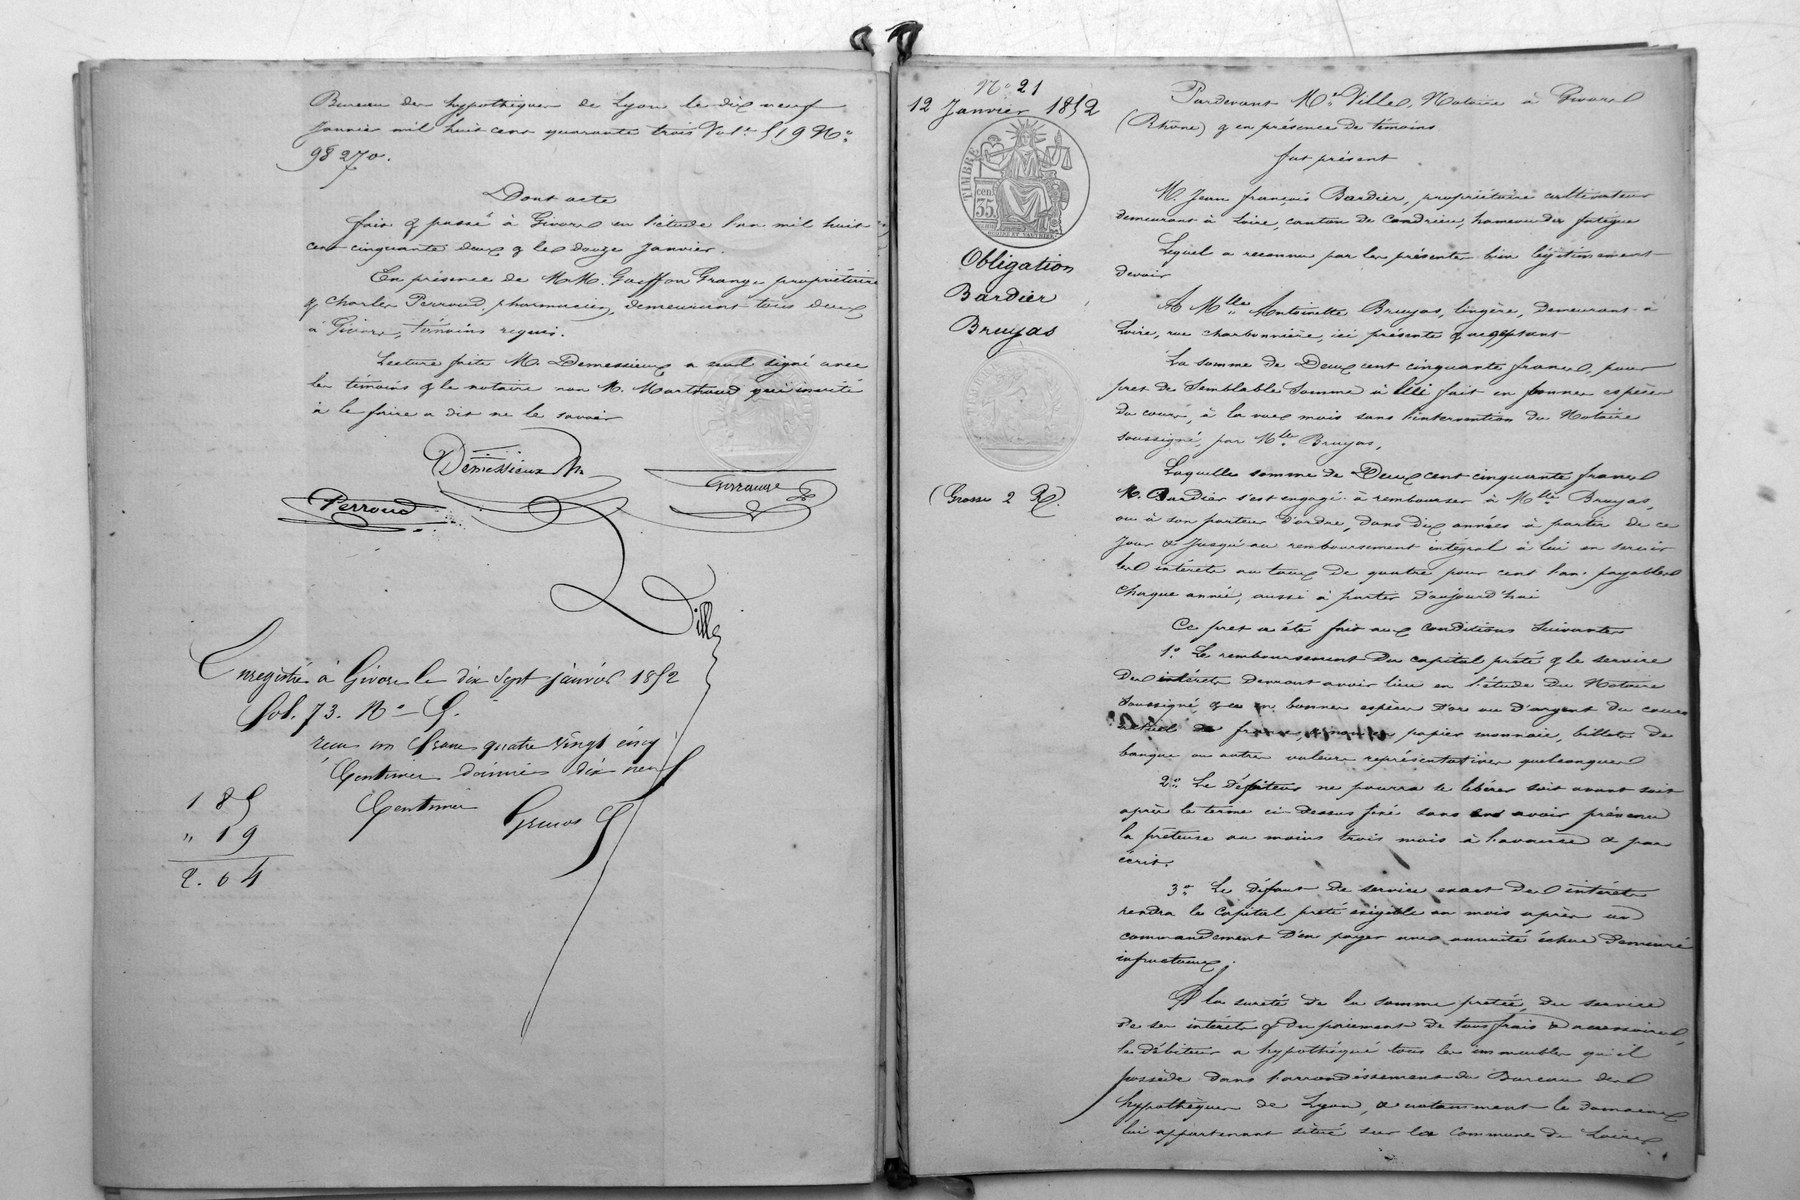 Bureau des hypothèques de Lyon le dix neuf
Janvier mil huit cent quarante trois Vol.e 519 No
98 270.
Dont acte
fait & passé à Givors en l'étude l'an mil huit
cent cinquante deux & le douze Janvier.
En présence de M.M. Goiffon Grange propriétaire
& Charles Perroud, pharmacien, demeurant tous deux
à Givors, témoins requis.
Lecture faite M. Demessieux a seul signé avec
les témoins & le notaire non M. Marthoud qui invité
à le faire a dit ne le savoir
Demessieux
Perroud
Ville
Enregistré à Givors le dix sept janvier 1852
fol. 73. No
reçu un franc quatre vingt cinq
Centimes dixième dix neuf
Centimes
1 85
" 19
2. 04
No 21
12 Janvier 1852
TIMBRE
cent
35
Obligation
Bardier
Bruyas
(Grosse 2 R.)
Pardevant Me Ville, Notaire à Givors
(Rhône) & en présence de témoins
fut présent
M. Jean françois Bardier, propriétaire cultivateur
demeurant à Loire, canton de Condrieu, hameau des
Lequel a reconnu par les présentes bien légitimement
devoir
A Mlle Antoinette Bruyas, lingère, demeurant à
Loire, rue charbonnière, ici présente & acceptant
La somme de Deux cent cinquante francs, pour
pret de Semblable Somme à lui fait en bonnes espèces
du cours, à la vue mais sans l'intervention du Notaire
soussigné, par Mlle Bruyas,
Laquelle somme de Deux cent cinquante francs
M. Bardier s'est engagé à rembourser à Mlle Bruyas,
ou à son porteur d'ordre, dans dix années à partir de ce
Jour & Jusqu'au remboursement intégral à lui en servir
les intérets au taux de quatre pour cent l'an payables
chaque année, aussi à partir d'aujourd'hui
Ce pret a été fait aux conditions suivantes
1o Le remboursement du capital prété & le service
des intérets devront avoir lieu en l'étude du Notaire
soussigné & ce en bonnes espèces d'or ou d'argent du cours
actuel de france, papier monnaie, billets de
banque ou autres valeurs représentatives quelconques
2o Le Débiteur ne pourra se libérer soit avant soit
après le terme ci-dessus fixé sans en avoir prévenu
la prêteuse au moins trois mois à l'avance & par
écrit.
3o Le défaut de service exact des intérets
rendra le capital preté exigible un mois après un
commandement d'en payer une annuité échue demeuré
infructueux.
A la sureté de la somme pretée, du service
de ses intérets & du paiement de tous frais & accessoires,
le débiteur a hypothéqué tous les immeubles qu'il
possède dans l'arrondissement du Bureau des
hypothèques de Lyon, & notamment le domaine
lui appartenant situé sur la commune de Loire